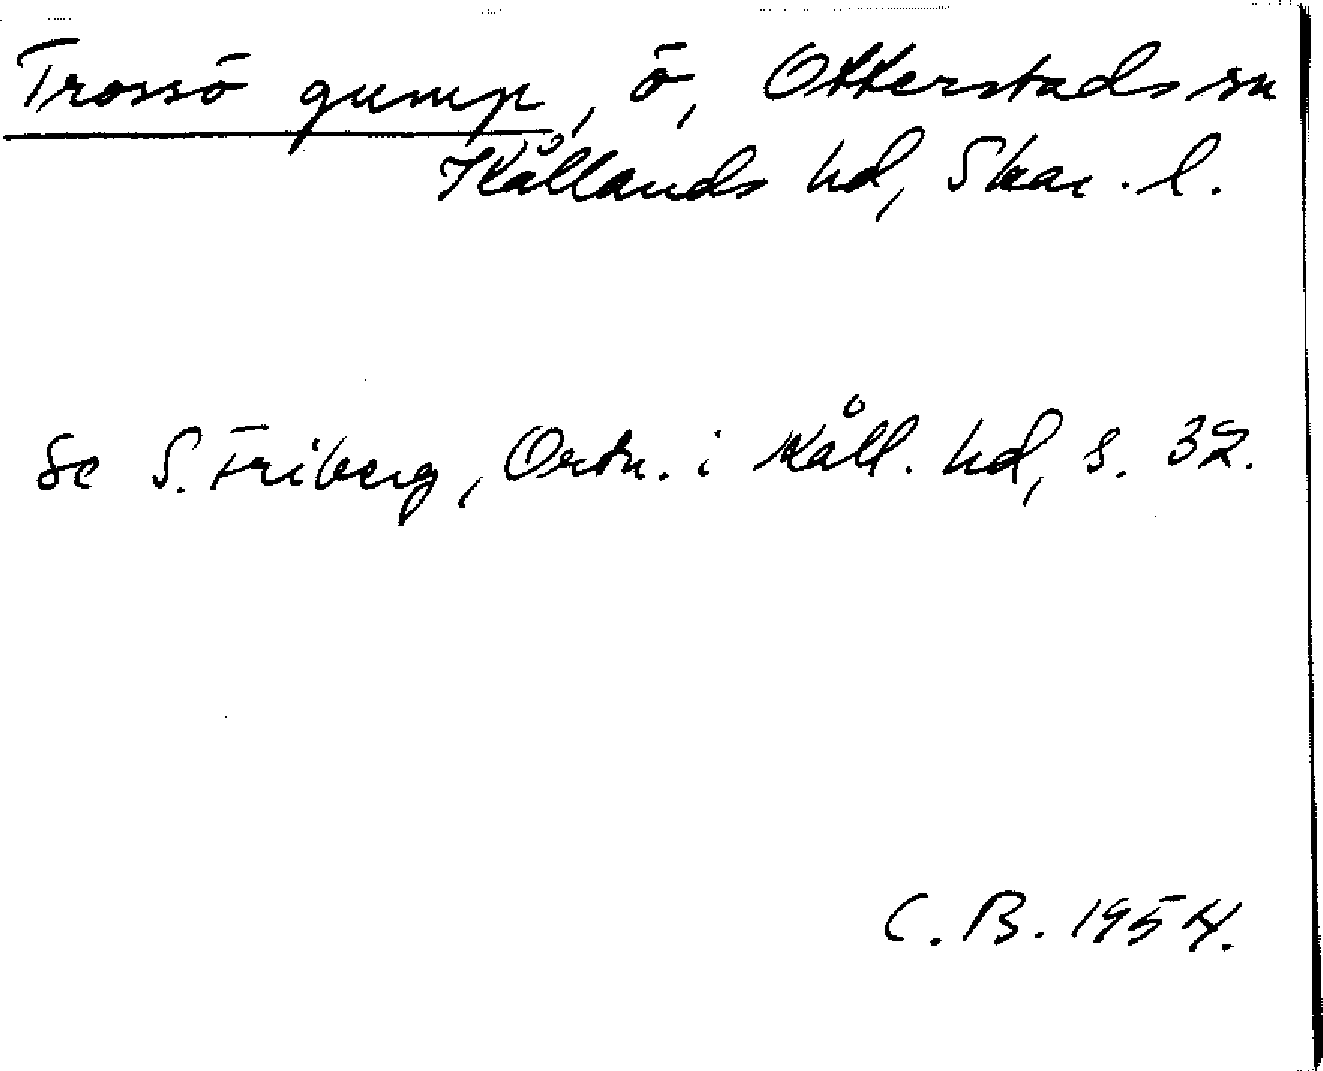 Trossö gump, ö, Otterstads sn
Kållands hd, Skar. l.
Se S. Friberg, Ortn. i Kåll. hd, s. 32.
C. B. 1954.